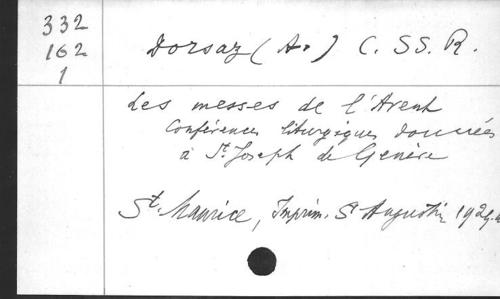 332
162
1
Dorsaz (A.) C. SS. R.
Les messes de l'Avent
Conférences liturgiques données
à St. Joseph de Genève
St. Maurice, Imprim. St Augustin 1929.